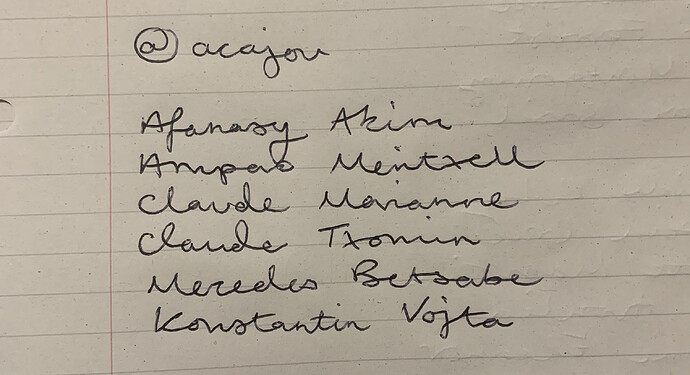 @ acajou
Afanasy Akim
Amparo Meritxell
Claude Marianne
Claude Txomin
Mercedes Betsabe
Konstantin Vojta